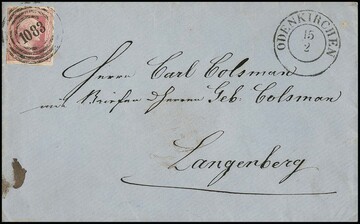 1083
ODENKIRCHEN
15
2
Herrn Carl Colsman
mit Briefen d Herren Geb. Colsman
Langenberg